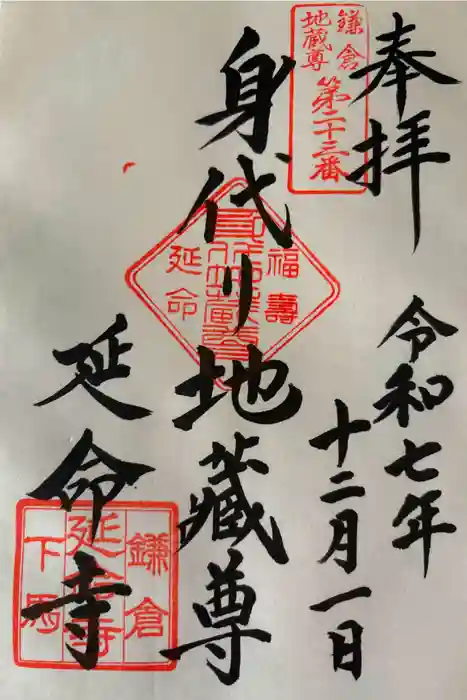 奉拝
鎌倉
地蔵尊
第二十三番
令和七年
十二月一日
身代り地蔵尊
福壽
延命
延命寺
鎌倉
延命寺
下馬